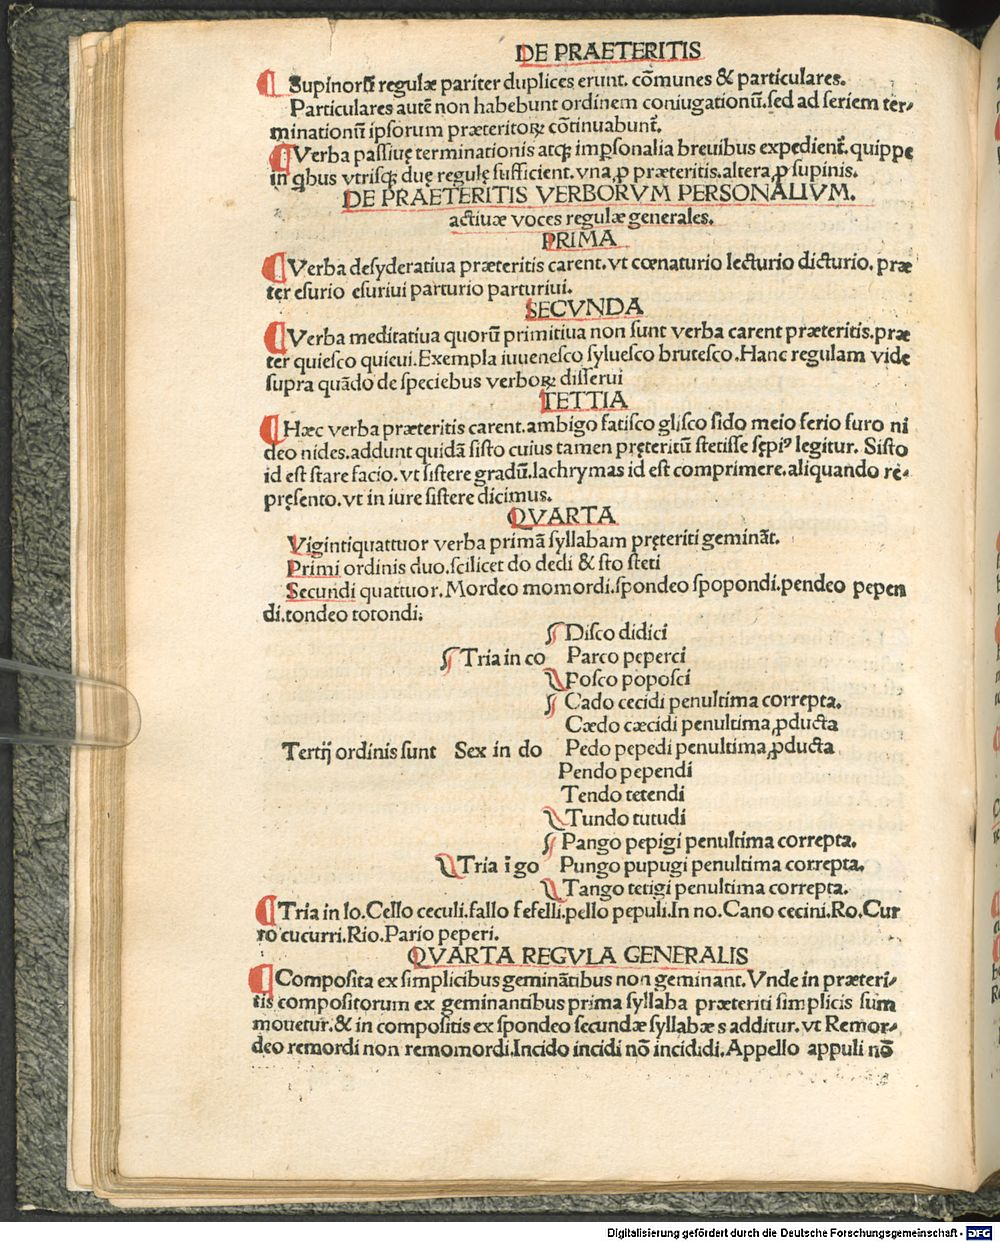 DE PRAETERITIS
Supinorũ regulæ pariter duplices erunt. cõmunes & particulares.
Particulares autẽ non habebunt ordinem coniugationũ.sed ad seriem ter⸗
minationũ ipsorum præteritoꝝ cõtinuabunt᷑.
Verba passiuę terminationis atqꝫ imꝑsonalia breuibus expedient᷑. quippe
in qbus vtrisqꝫ duę regulę sufficient. vna ꝓ præteritis.altera ꝓ supinis.
DE PRAETERITIS VERBORVM PERSONALIVM.
actiuæ voces regulæ generales.
PRIMA
Verba desyderatiua præteritis carent. vt cœnaturio lecturio dicturio. præ
ter esurio esuriui parturio parturiui.
SECVNDA
Verba meditatiua quorũ primitiua non sunt verba carent præteritis.præ
ter quiesco quieui.Exempla iuuenesco syluesco brutesco.Hanc regulam vide
supra quãdo de speciebus verboꝝ disserui
TETTIA
Hæc verba præteritis carent.ambigo fatisco glisco sido meio ferio furo ni
deo nides.addunt quidã sisto cuius tamen pręteritũ stetisse sępiꝰ legitur. Sisto
id est stare facio. vt sistere gradũ.lachrymas id est comprimere.aliquando re⸗
pręsento.vt in iure sistere dicimus.
QVARTA
Vigintiquattuor verba primã syllabam pręteriti geminãt.
Primi ordinis duo.scilicet do dedi & sto steti
Secundi quattuor. Mordeo momordi.spondeo spopondi.pendeo pepen
di.tondeo totondi.
Disco didici
Tria in co Parco peperci
Posco poposci
Cado cecidi penultima correpta.
Cædo cæcidi penultima ꝓducta
Tertij ordinis sunt Sex in do Pedo pepedi penultima ꝓducta
Pendo pependi
Tendo tetendi
Tundo tutudi
Pango pepigi penultima correpta.
Tria ĩ go Pungo pupugi penultima correpta.
Tango tetigi penultima correpta.
Tria in lo.Cello ceculi.fallo fefelli.pello pepuli.In no.Cano cecini.Ro.Cur
ro cucurri.Rio.Pario peperi.
QVARTA REGVLA GENERALIS
Composita ex simplicibus geminãtibus non geminant. Vnde in præteri⸗
tis compositorum ex geminantibus prima syllaba præteriti simplicis sum
mouetur.& in compositis ex spondeo secundæ syllabæ s additur. vt Remor⸗
deo remordi non remomordi.Incido incidi nõ incididi.Appello appuli nõ
Digitalisierung gefördert durch die Deutsche Forschungsgemeinschaft - DFG